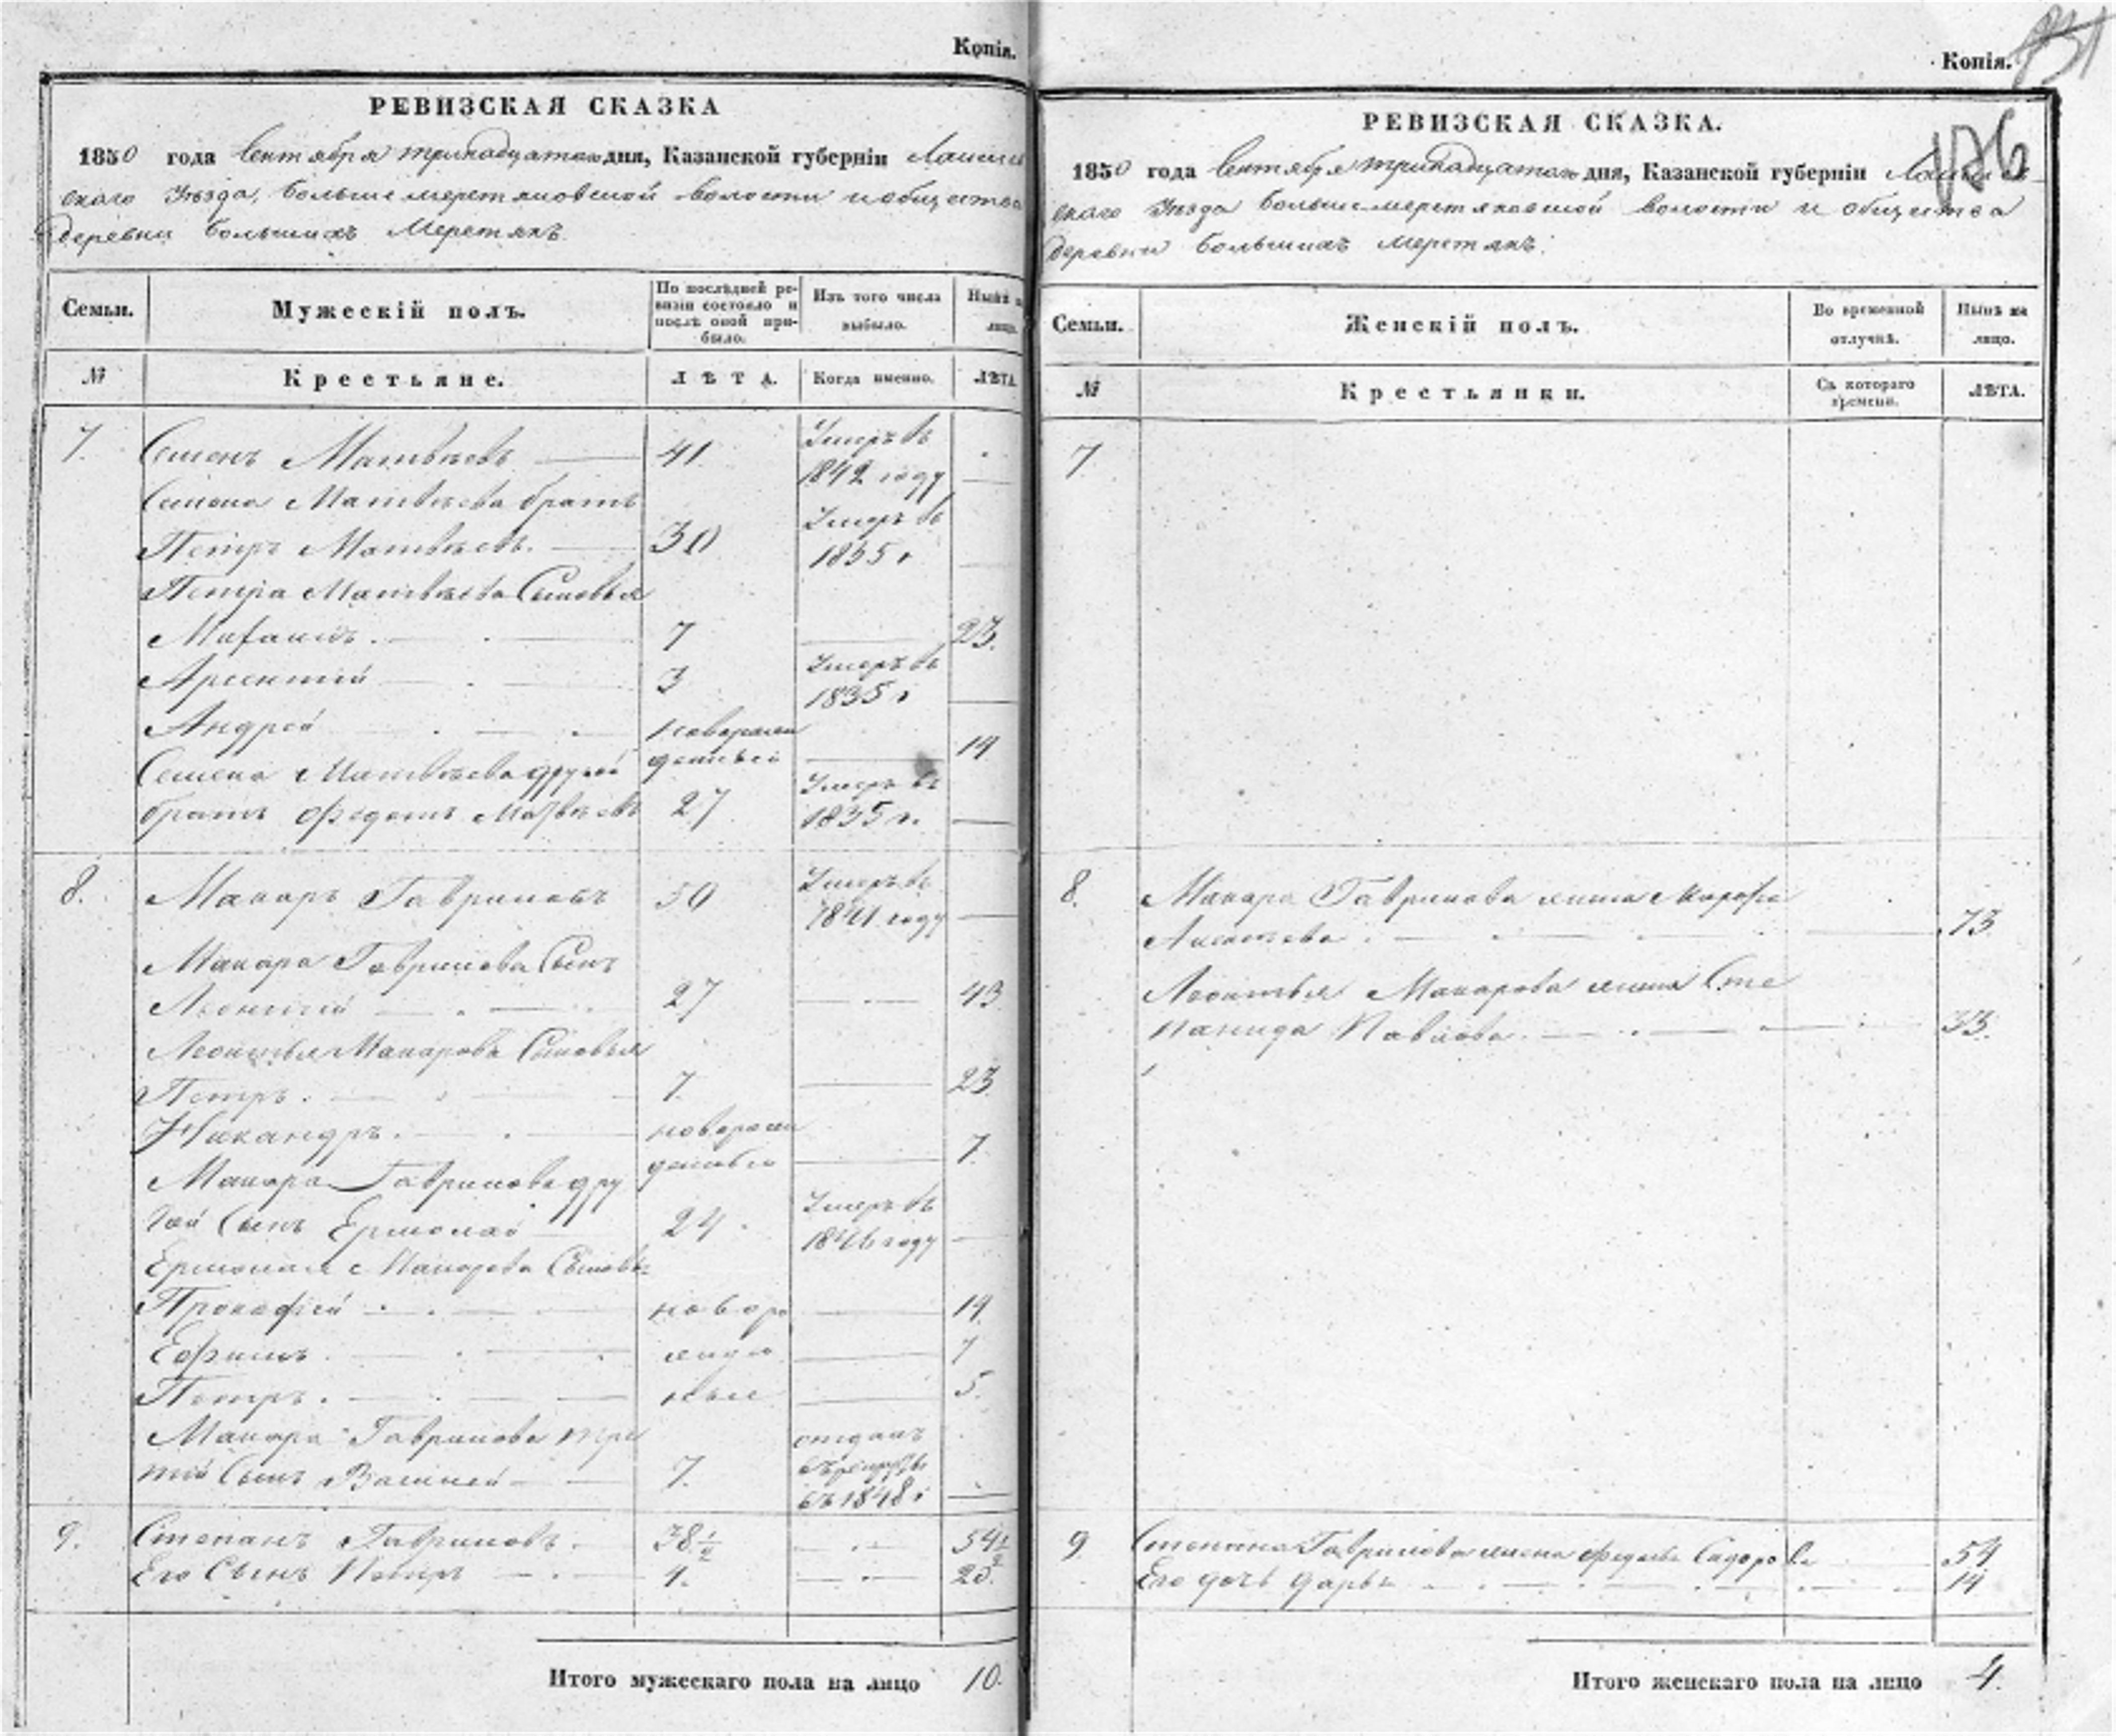 Копія.
РЕВИЗСКАЯ СКАЗКА
1850 года Сентября тринадцатаго дня, Казанской губерніи Лаишев
скаго Уѣзда, Большемеретяковской волости и общества
деревни Большихъ Меретякъ
Семьи.
Мужескій полъ.
По послѣдней ре-
визіи состояло и
послѣ оной при-
было.
Изъ того числа
выбыло.
Нынѣ на
лицо.
№
Крестьяне.
ЛѢТА.
Когда именно.
ЛѢТА.
7. Семенъ Матвѣевъ 41 Умеръ въ 1842 году
Семена Матвѣева братъ
Петръ Матвѣевъ. 30 Умеръ въ 1835 г
Петра Матвѣева Сыновья
7 23.
Арсентій 3 Умеръ въ 1835 г
Андрей новорож денный 14
Семена Матвѣева другой
братъ Федотъ Матвѣевъ 27 Умеръ въ 1835 г.
8. Макаръ Гавриловъ 50 Умеръ въ 1841 году
Макара Гаврилова Сынъ
Леонтій 27 43
Леонтья Макарова Сыновья
Петръ. 7. 23
Никандръ. новорож денный 7.
Макара Гаврилова дру
гой Сынъ Ермолай 24 Умеръ въ 1846 году
Ермолая Макарова Сыновья
Прокофій новоро 14.
Ефимъ. жден 7
Петръ. ные 5.
Макара Гаврилова тре
тій Сынъ Василей 7. отданъ въ рекруты въ 1848 г
9. Степанъ Гавриловъ. 38½ 54½
Его Сынъ Петръ 4. 20.
Итого мужескаго пола на лицо 10.
Копія.
176
РЕВИЗСКАЯ СКАЗКА.
1850 года Сентября тринадцатаго дня, Казанской губерніи Лаишев
скаго Уѣзда Большемеретяковской волости и общества
деревни Большихъ Меретякъ.
Семьи.
Женскій полъ.
Во временной
отлучкѣ.
Нынѣ на
лицо.
№
Крестьянки.
Съ котораго
времени.
ЛѢТА.
7
8. Макара Гаврилова жена Марфа
73
Леонтья Макарова жена Сте
панида Павлова. 33.
9 Степана Гаврилова жена Федосья Сидорова 54
Его дочь Дарья 14
Итого женскаго пола на лицо 4.